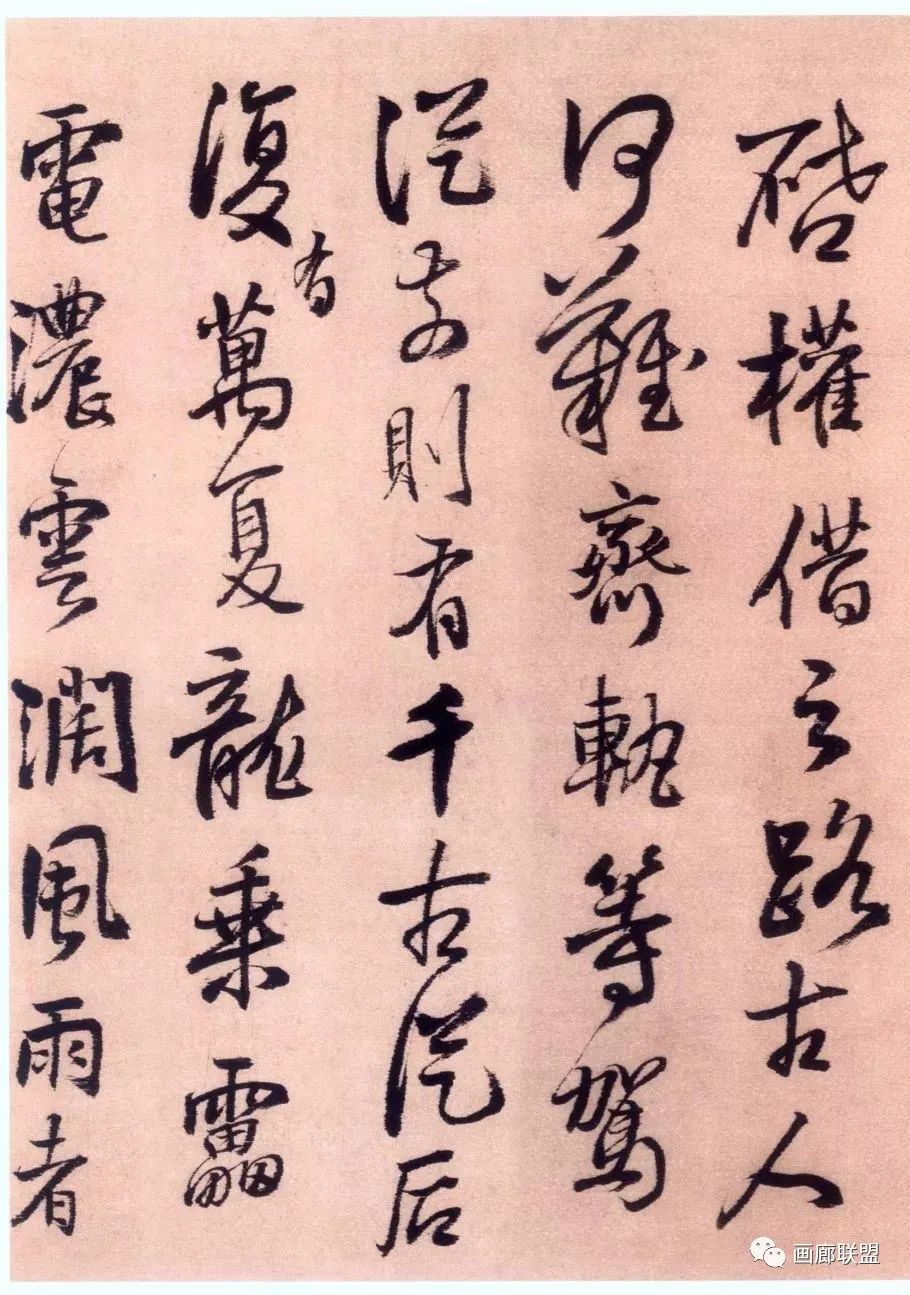 啓權借之路古人
何難齊軌等駕
從前則有千古從后
復有萬夏龍乗靁
電濃雲潤風雨者
画廊联盟